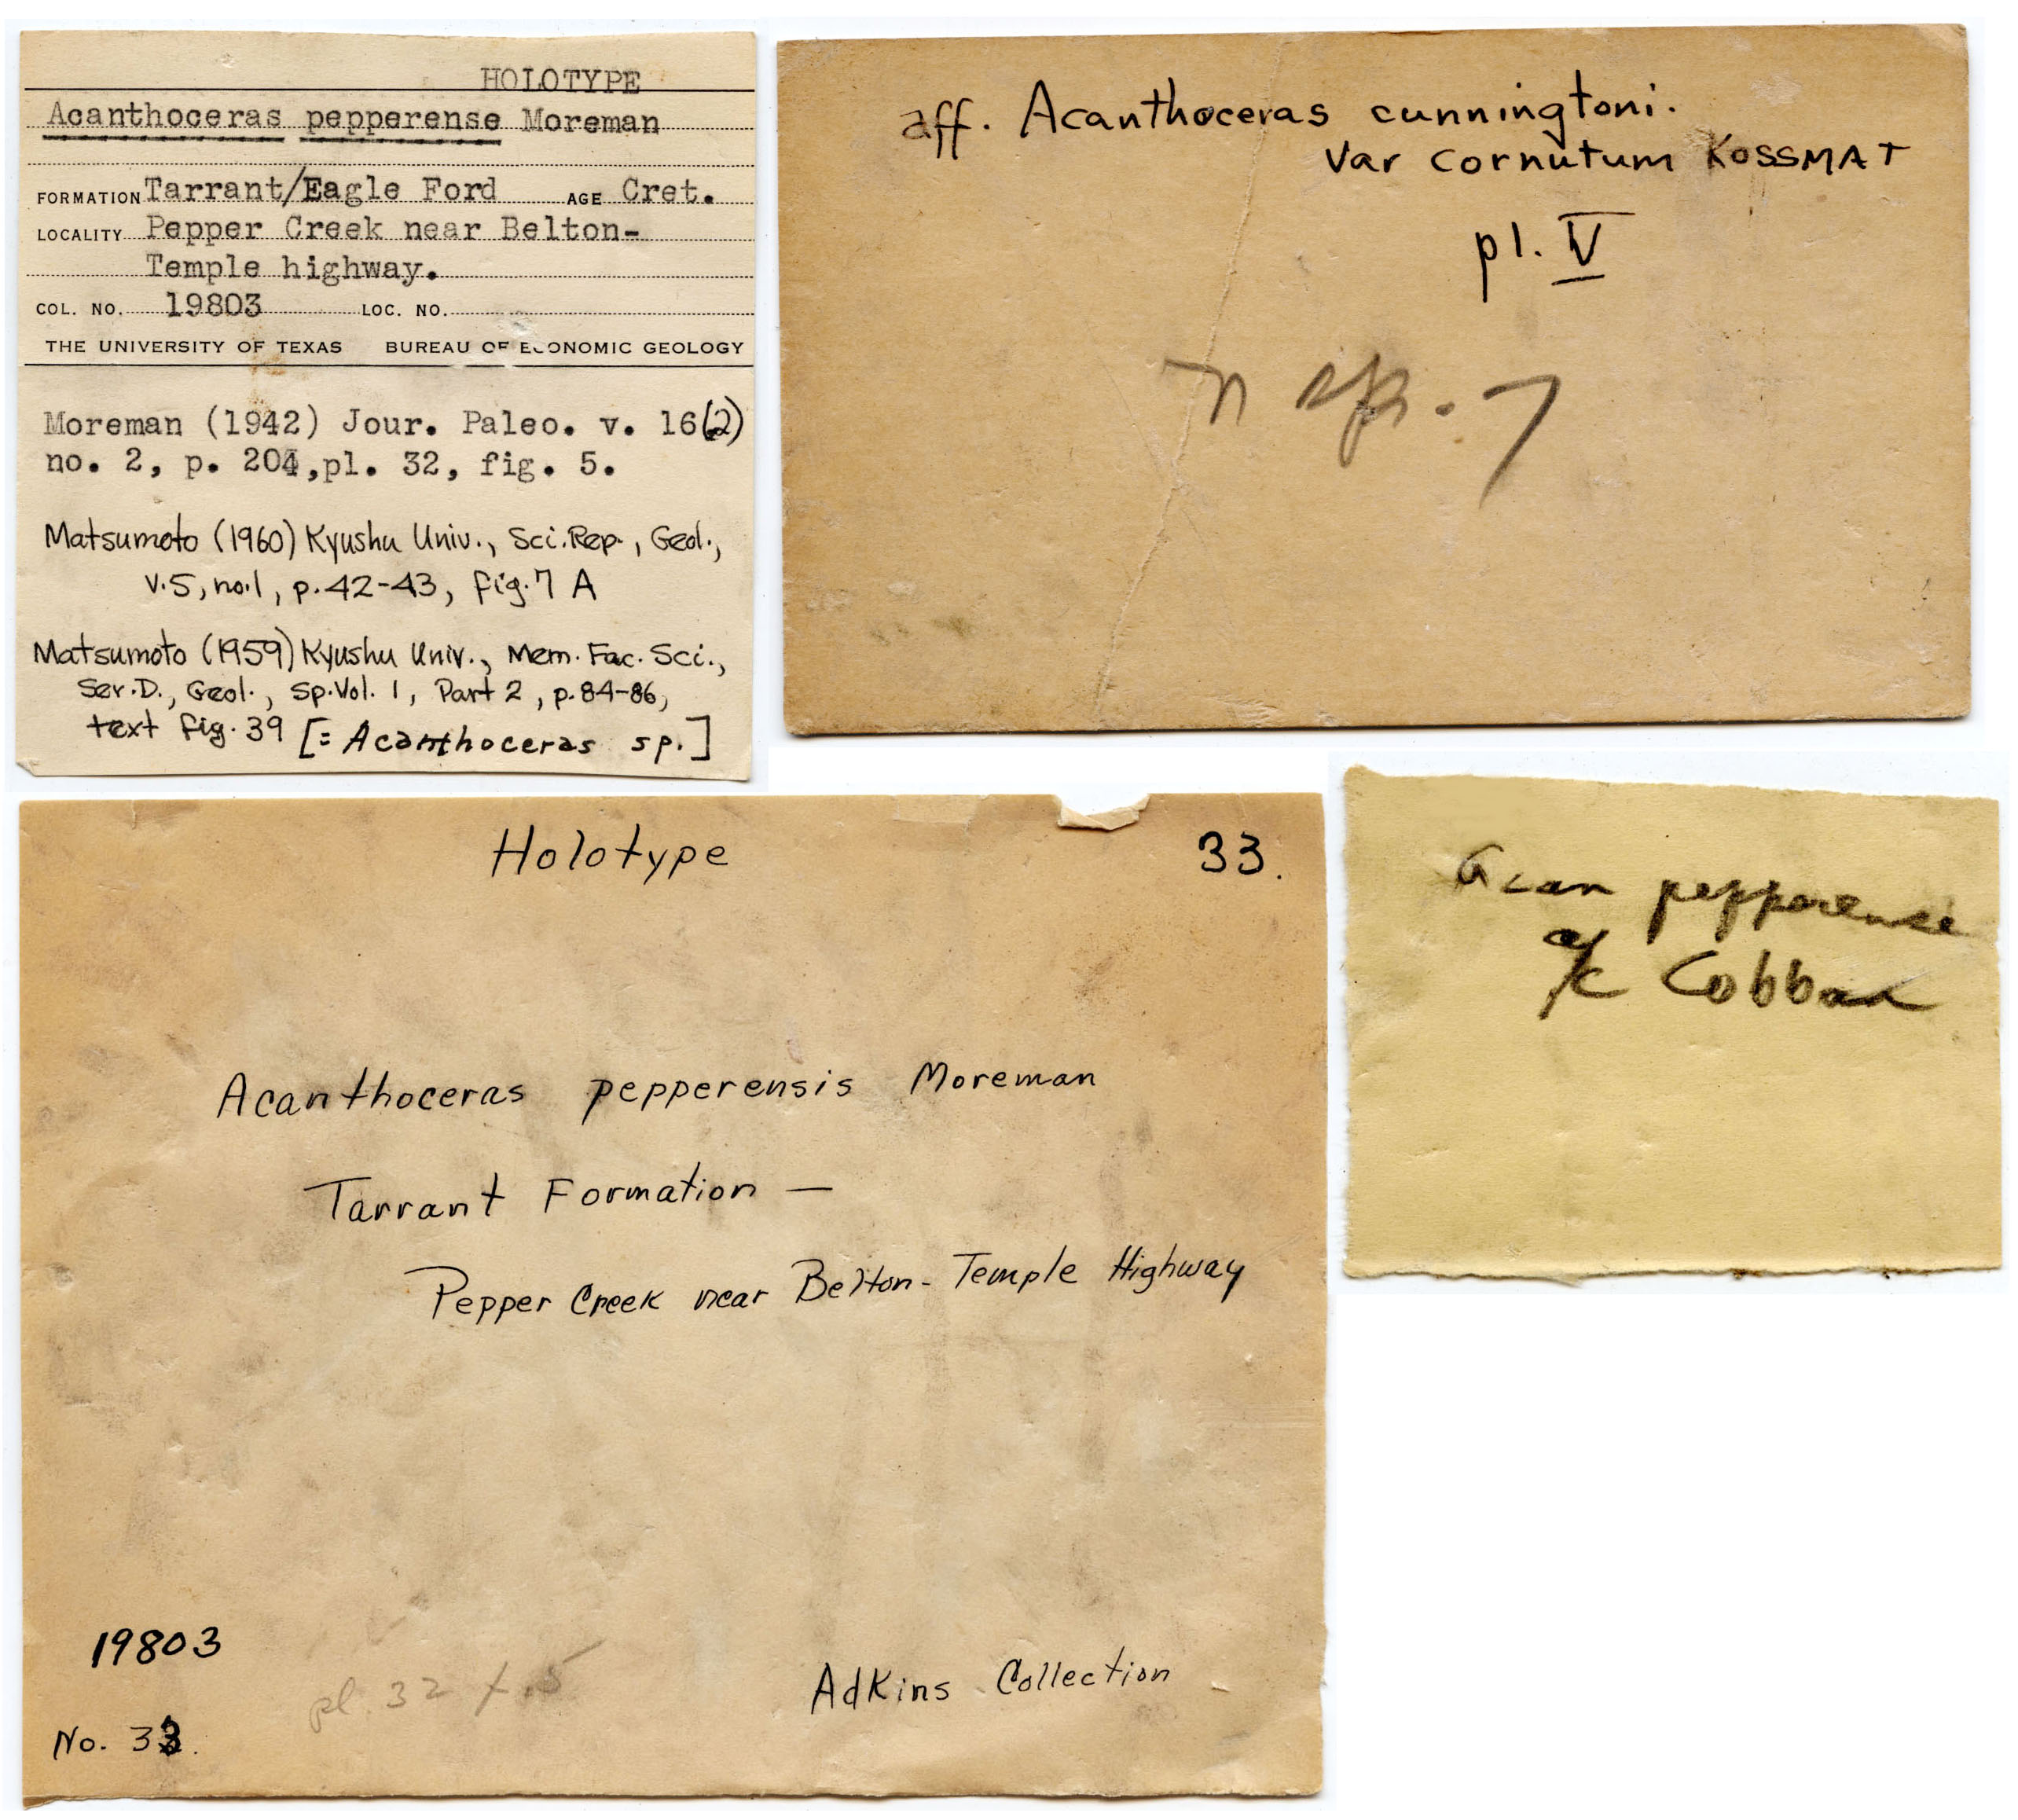 HOLOTYPE
Acanthoceras pepperense Moreman
FORMATION Tarrant/Eagle Ford AGE Cret.
LOCALITY Pepper Creek near Belton-
Temple highway.
COL. NO. 19803 LOC. NO.
THE UNIVERSITY OF TEXAS BUREAU OF ECONOMIC GEOLOGY
Moreman (1942) Jour. Paleo. v. 16(2)
no. 2, p. 204, pl. 32, fig. 5.
Matsumoto (1960) Kyushu Univ., Sci. Rep., Geol.,
v.5, no.1, p.42-43, fig.7 A
Matsumoto (1959) Kyushu Univ., Mem. Fac. Sci.,
Ser.D., Geol., Sp.Vol. 1, Part 2, p.84-86,
text fig. 39 [= Acanthoceras sp.]
aff. Acanthoceras cunningtoni.
Var cornutum KOSSMAT
pl. V
n sp. 7
Holotype 33.
Acanthoceras pepperensis Moreman
Tarrant Formation —
Pepper Creek near Belton-Temple Highway
19803
pl. 32 f. 5
Adkins Collection
No. 33.
Acan pepperense
a/c Cobban